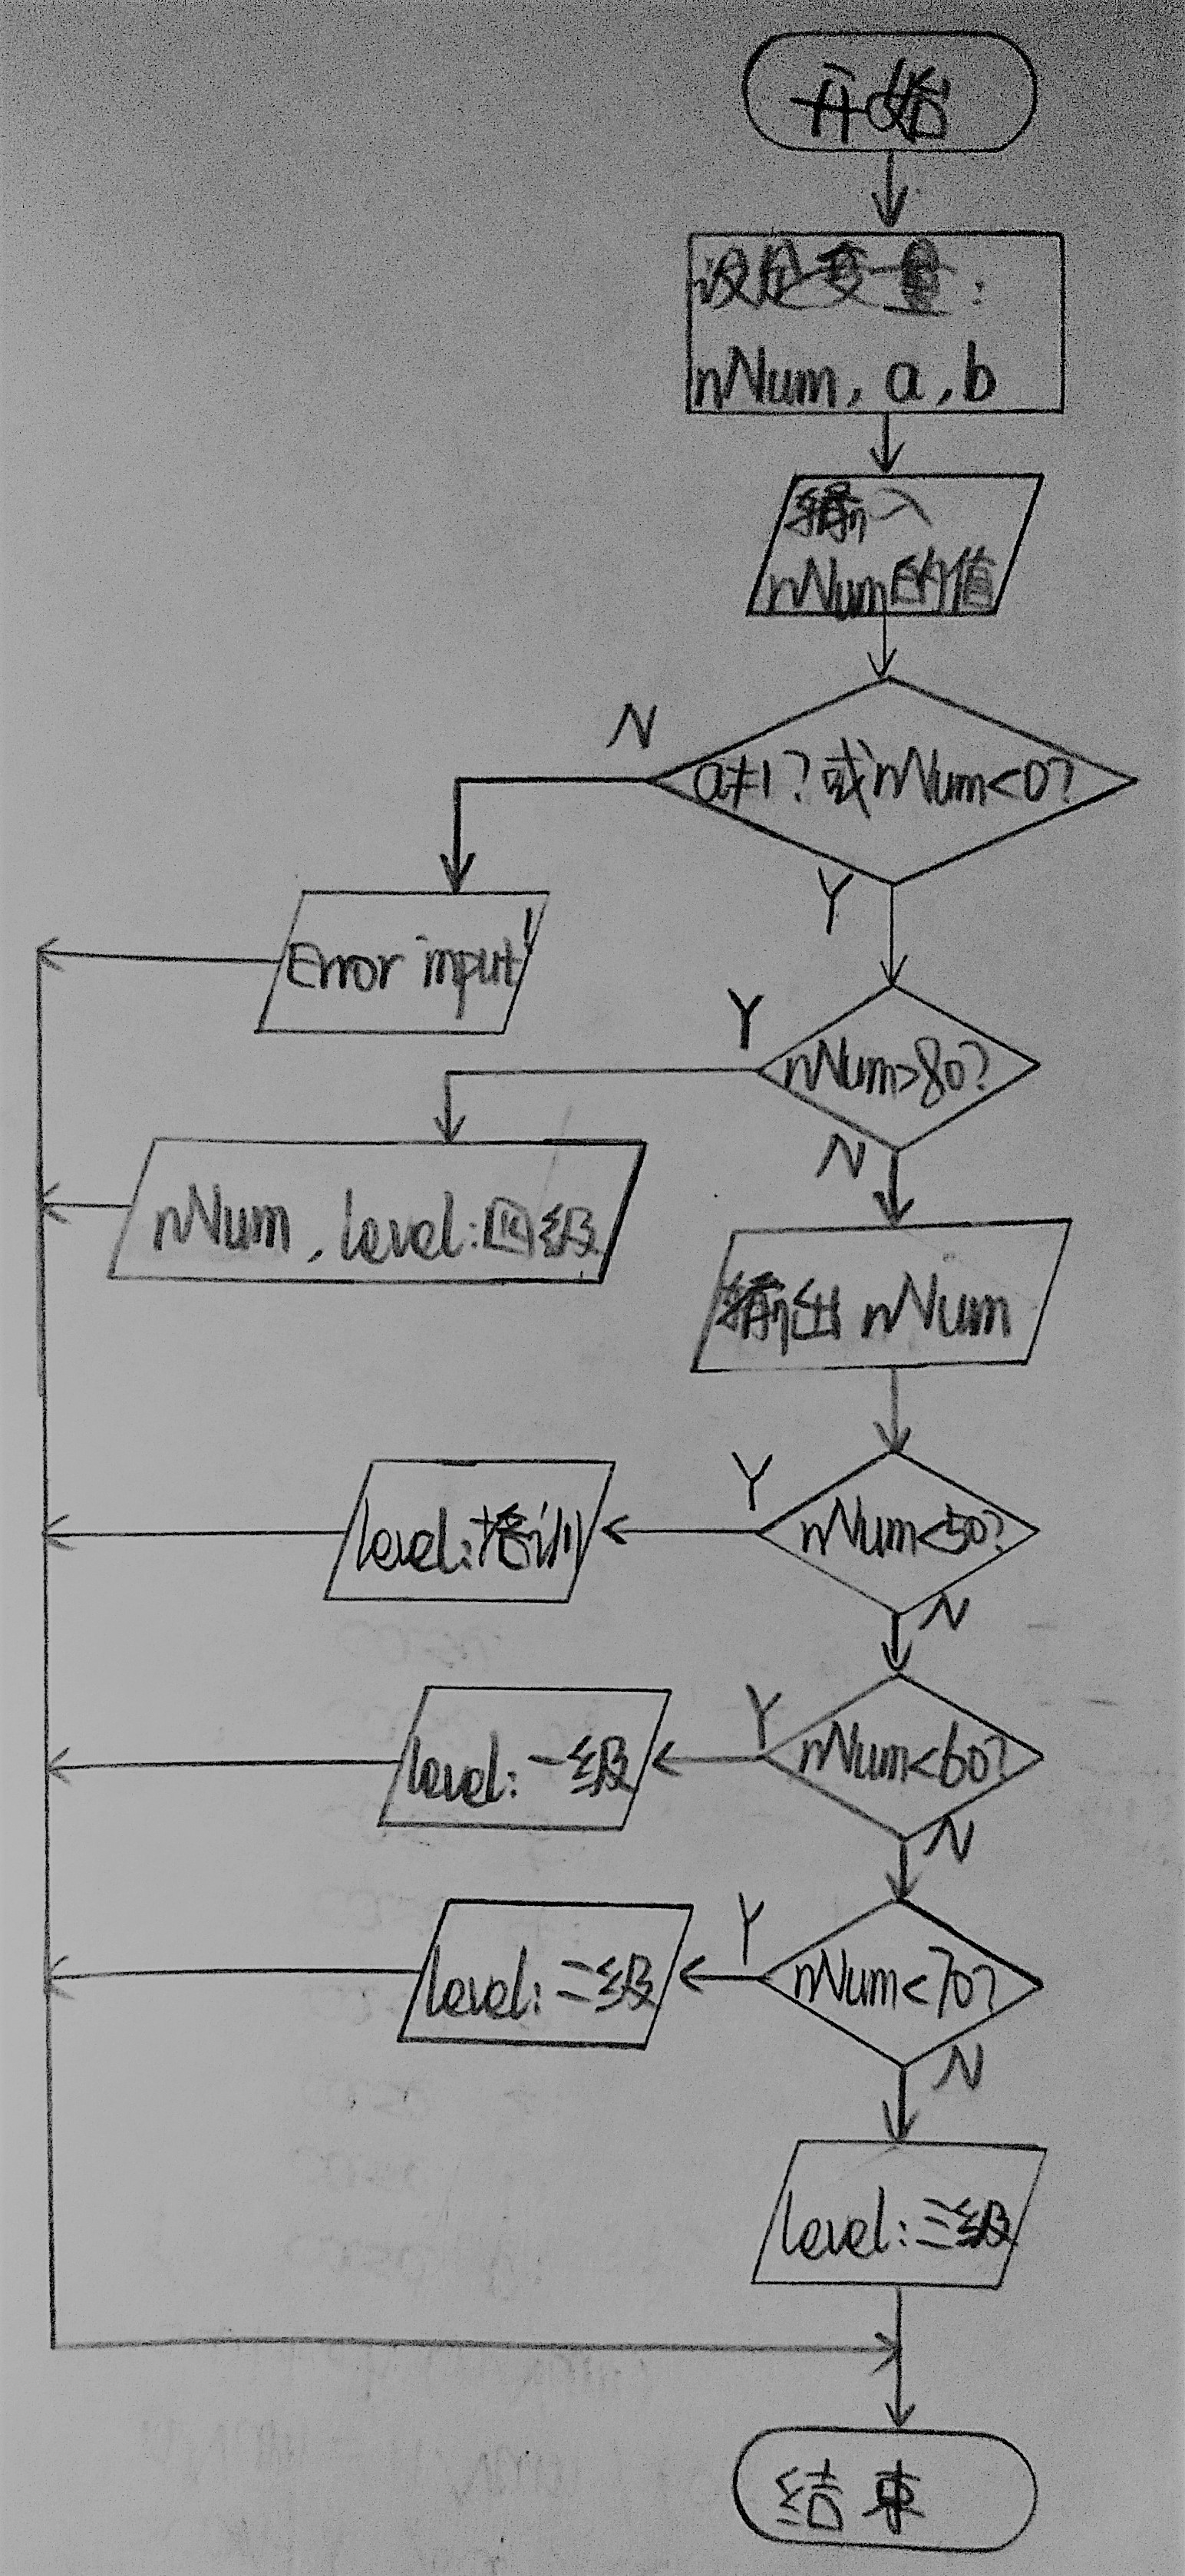 开始
设定变量:
nNum, a, b
输入
nNum的值
N
a≠1?或nNum<0?
Y
Error input!
Y
nNum>80?
N
nNum, level:四级
输出 nNum
Y
nNum<50?
level:培训
N
Y
nNum<60?
level:一级
N
Y
nNum<70?
level:二级
N
level:三级
结束